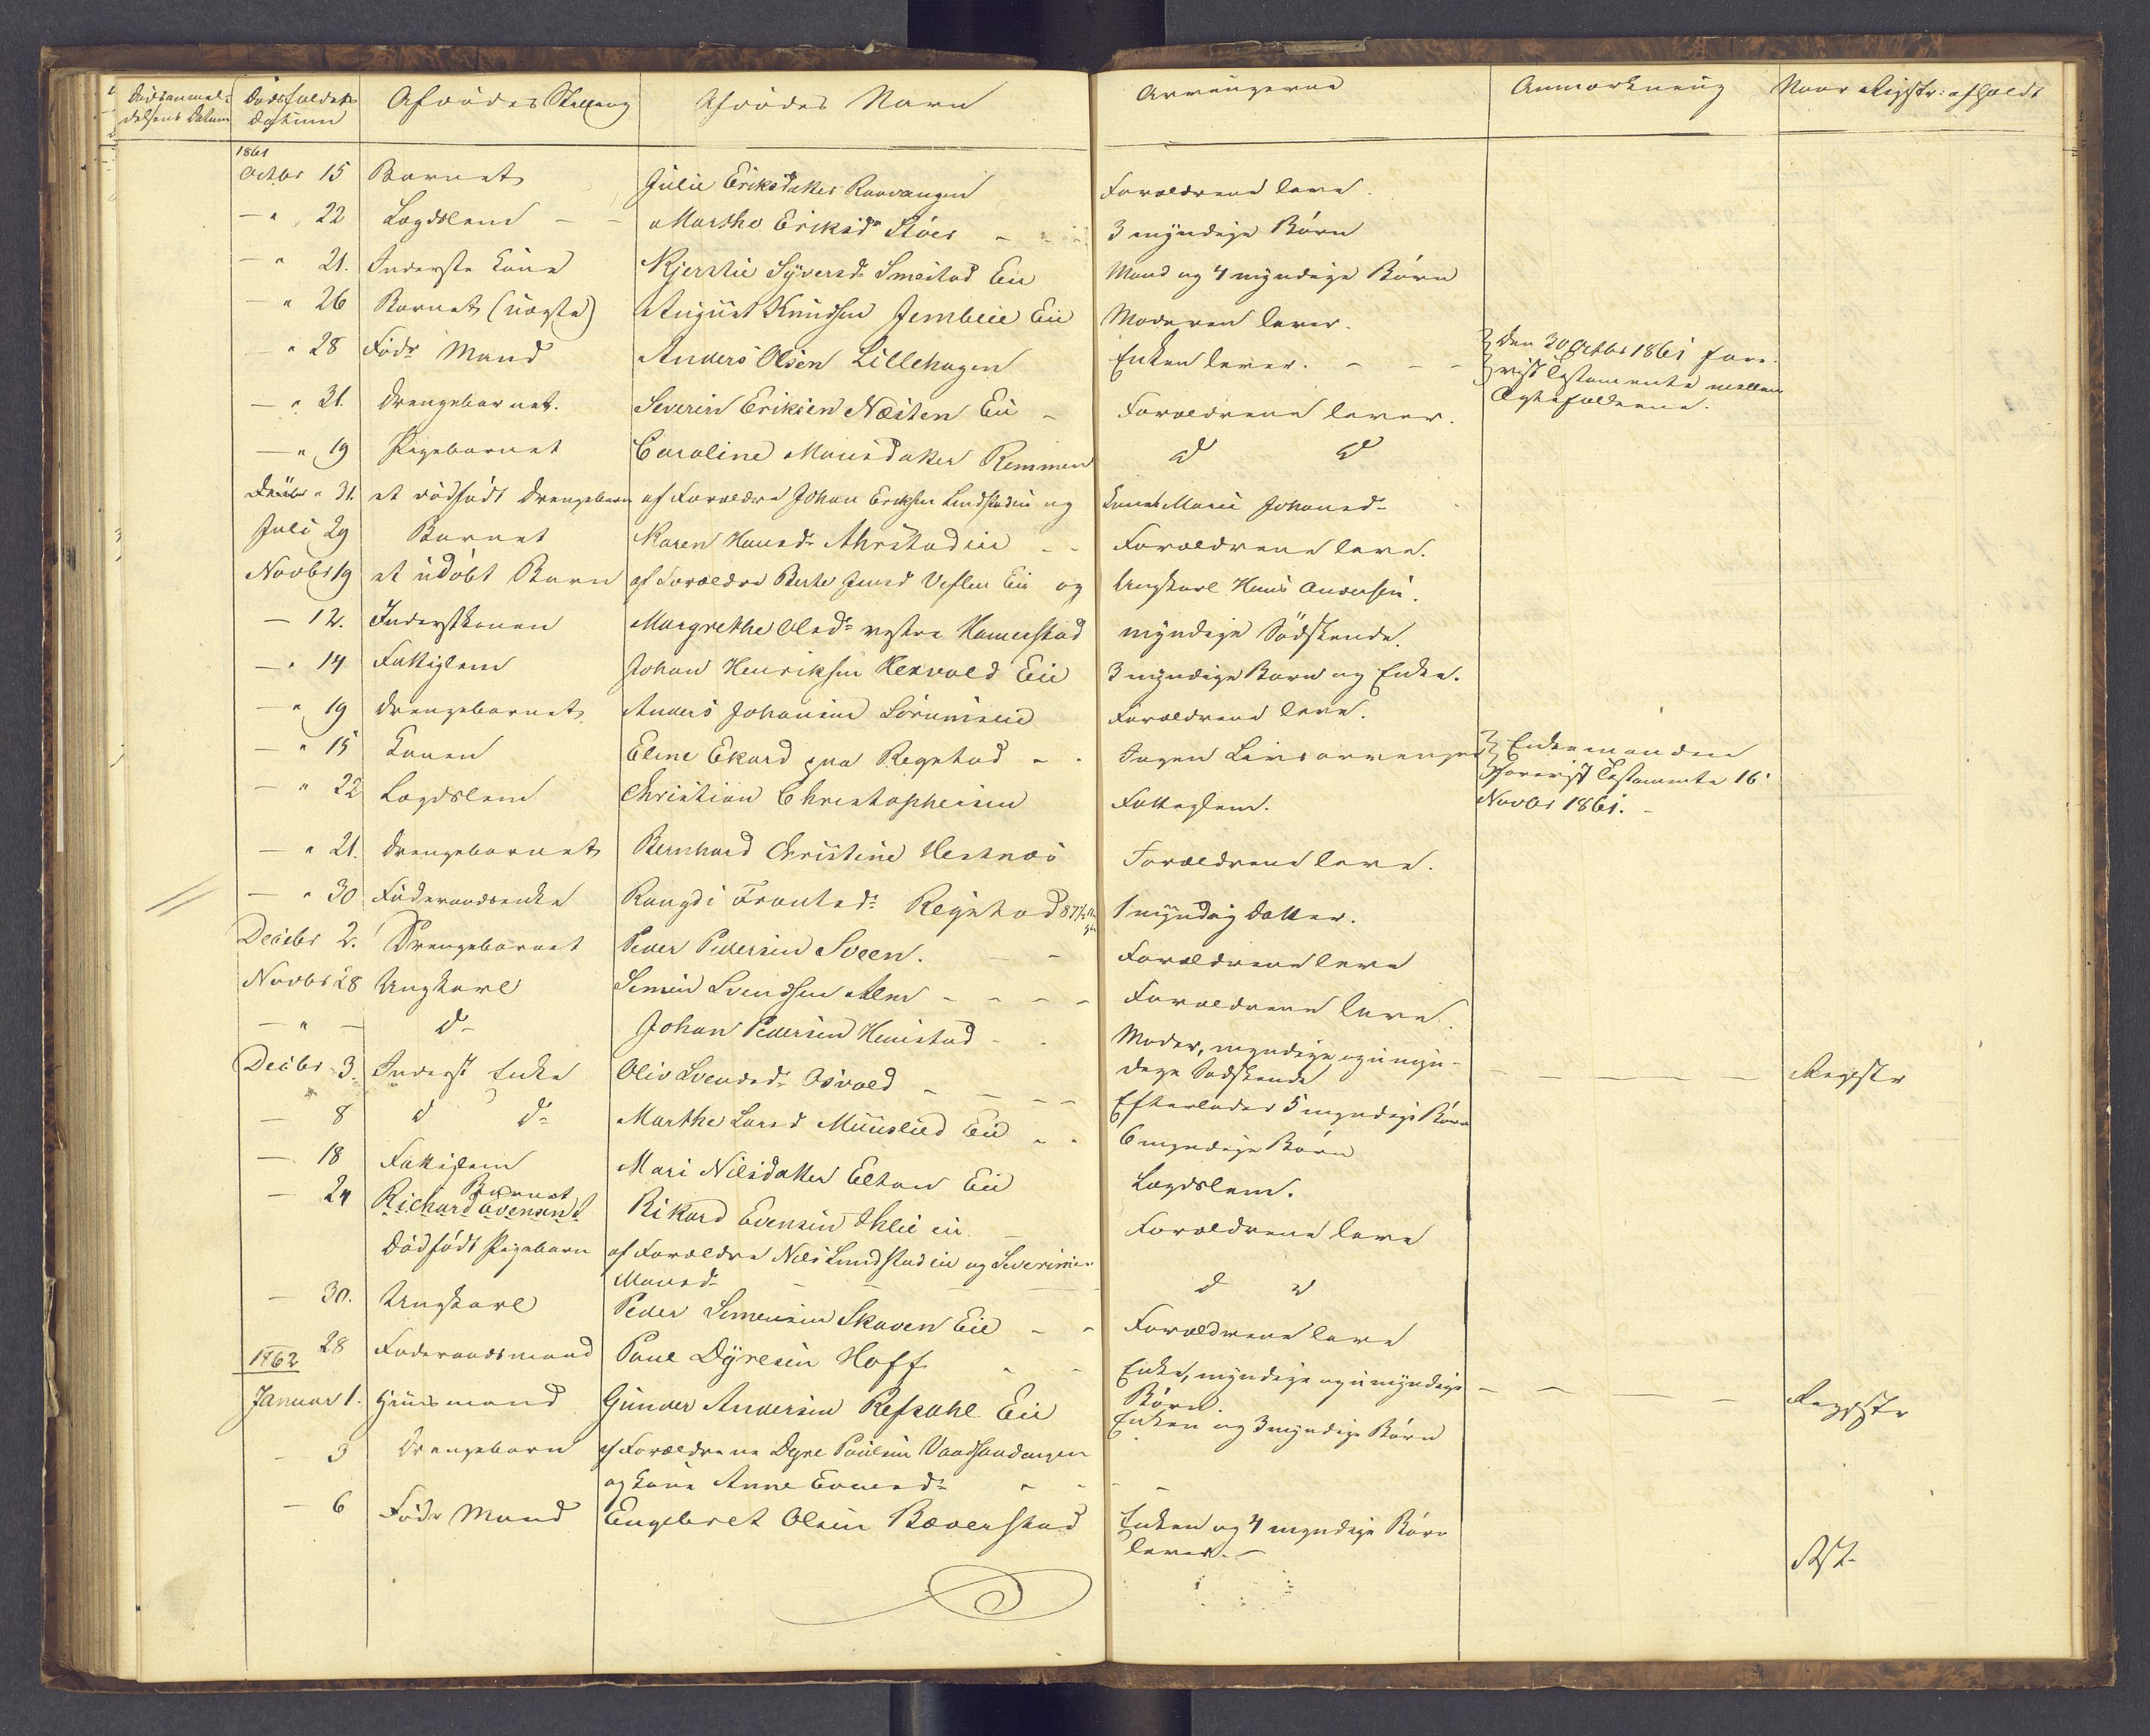 Dødsanmel-
delsens Datum
Dødsfaldets
Datum
Afdødes Stilling
Afdødes Navn
Arvingerne
Anmærkning
Naar Registr: afholdt
1861
Octbr 15 Barnet Julie Eriksdatter Raavangen Forældrene leve.
— " 22 Lægdslem — Marthe Eriksdr Stöer — 3 myndige Börn
— " 21. Inderste Kone Kjerstie Syversdr Smestad Eie Mand og 4 myndige Börn
— " 26 Barnet (uægte) August Knudsen Jemblie Eie Moderen lever.
— " 28 Födr Mand Anders Olsen Lillehagen Enken lever. — — — den 30 Octbr 1861 fore-
vist Testamente mellem
Ægtefolkene.
— " 31. Drengebarnet. Severin Eriksen Næsten Eie — Forældrene lever.
— " 19 Pigebarnet Caroline Monsdatter Remmen d d
" 31. et dødfødt Drengebarn af Forældre Johan Eriksen Lundstadeie og Kone Marie Johansdr
Juli 29 Barnet Karen Hansdr Ahrstadeie — Forældrene leve.
Novbr 19 et udöbt Barn af Forældre Berte Jensd Veflen Eie og Ungkarl Hans Andersen.
— 12. Inderstkonen Margrethe Olsdr vestre Hamerstad myndige Södskende.
— " 14 Fattiglem Johan Henriksen Hexvold Eie 3 myndige Børn og Enke.
— " 19 Drengebarnet Anders Johansen Forældrene leve.
— " 15 Konen Eline Ekard Regstad — Ingen Livsarvinger Enkemanden
foreviist Testamente 16'
Novbr 1861. —
— " 22 Lægdslem Christian Christophersen Fattiglem.
— " 21. Drengebarnet Bernhard Christine Hestnæs Forældrene leve.
— " 30 Föderaadsenke Rangdi Frantsdr Regstad 87 1 myndig Datter.
Decbr 2. Drengebarnet Peder Pedersen Sveen. — — Forældrene leve
Novbr 28 Ungkarl Simen Svendsen Alm — — — — Forældrene leve.
— " — d— Johan Pedersen Hemstad — Moder, myndige og umyn-
dige Södskende — — — — — Registr
Decbr 3. Inderst Enke Oliv Svendsdr Osvold — — — — Efterlader 5 myndige Börn
— 8 d d— Marthe Larsd Muuslied Eie — — 6 myndige Börn
— 18 Fattiglem Mari Nilsdatter Eltun Eie Lægdslem.
— 24 Barnet
Richard Evensen Rikard Evensen Ihlie eie — Forældrene leve
Dödfödt Pigebarn af Forældre Nils Lundstadeie og Severine
Monsdr — — — d d
— 30. Ungkarl Peder Simensen Skaven Eie — — Forældrene leve
28 Föderaadsmand Paul Dyresen Hoff — — Enke, myndige og umyndige
Börn. — — — — Registr
1862
Januar 1. Huusmand Gunder Andersen Refsahl Eie Enken og 3 myndige Börn
— 3 Drengebarn af Forældrene Dyre Paulsen Vandsandengen
og Kone Anne Evensdr — — — —
— 6 Födr Mand Engebret Olsen Bæverstad Enken og 4 myndige Börn
lever. —